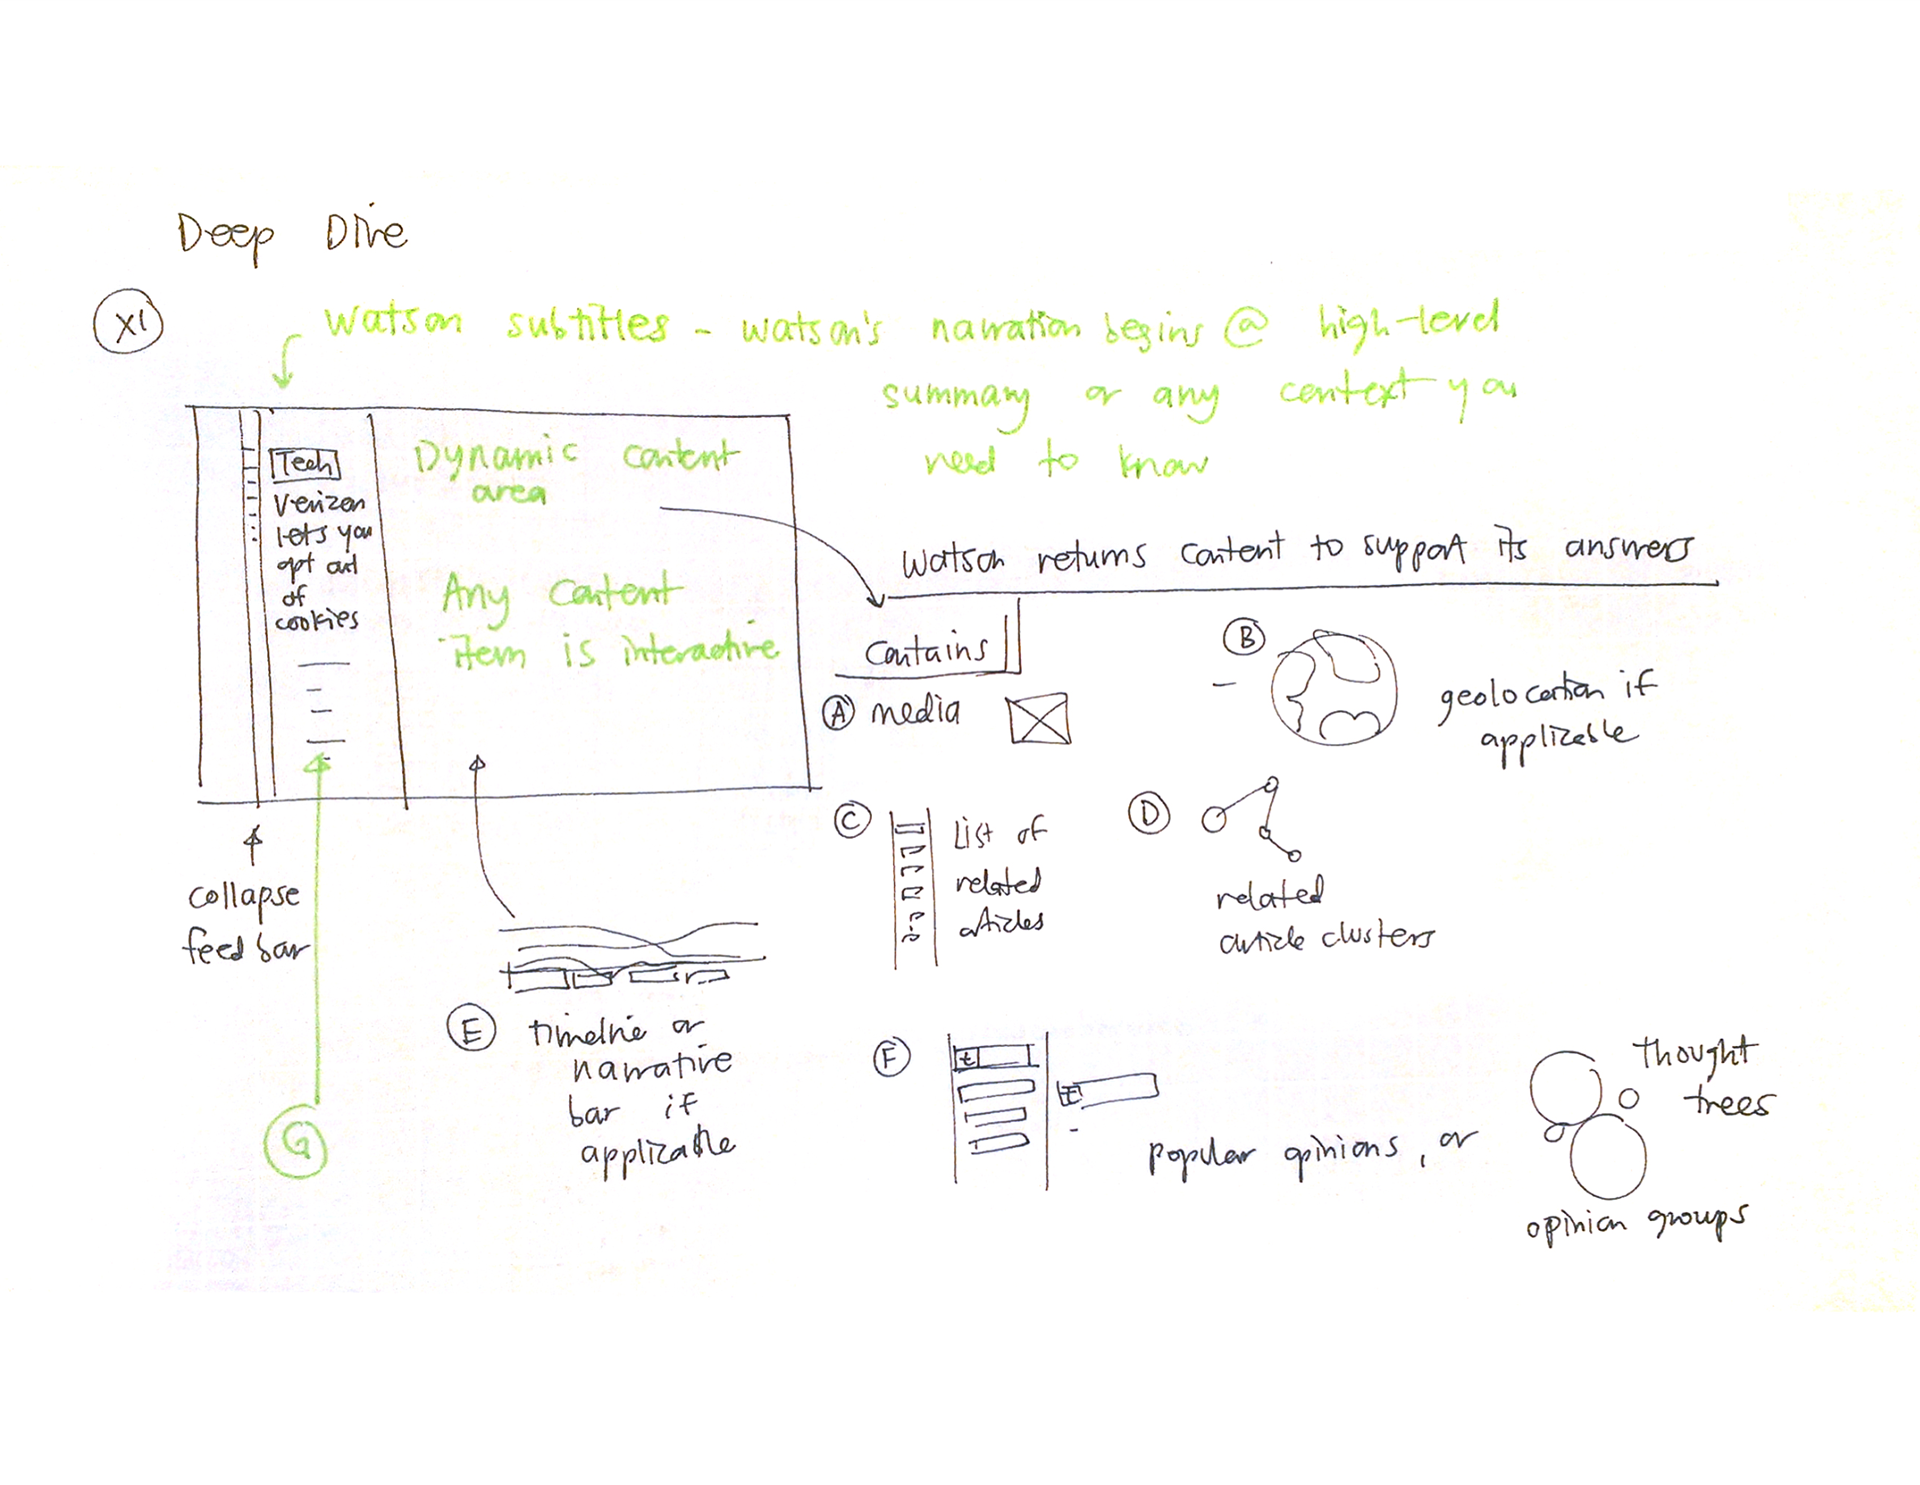 Deep Dive
XI
Watson subtitles - watson's narration begins @ high-level
summary or any context you
need to know
Tech
Verizon
lets you
opt out
of
cookies
Dynamic content
area
Any content
item is interactive
Watson returns content to support its answers
Contains
A media
B
geolocation if
applicable
C
List of
related
articles
D
related
article clusters
collapse
feed bar
E timeline or
narrative
bar if
applicable
F
t
t
popular opinions, or
thought
trees
opinion groups
G